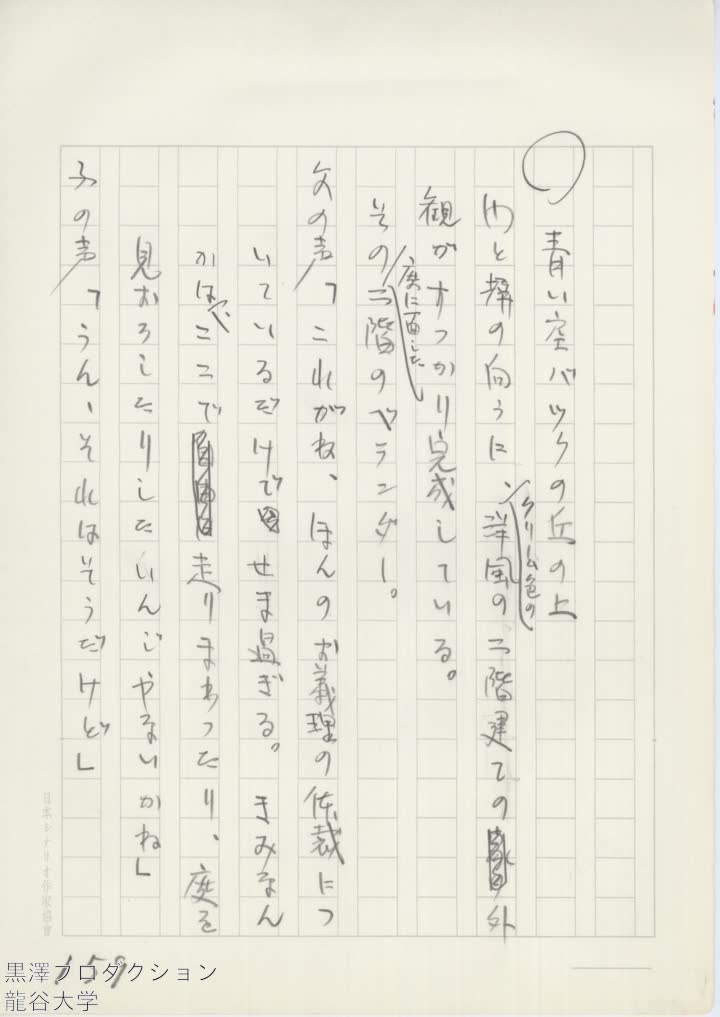 ○ 青い空バックの丘の上
門と塀の向うに、クリーム色の洋風の二階建ての外
観がすっかり完成している。
その庭に面した二階のベランダー。
父の声「これがね、ほんのお義理の体裁につ
いているだけでせま過ぎる。きみなん
かはここで走りまわったり、庭を
見おろしたりしたいんじゃないかね」
子の声「うん、それはそうだけど」
日本シナリオ作家協會
159
黒澤プロダクション
龍谷大学